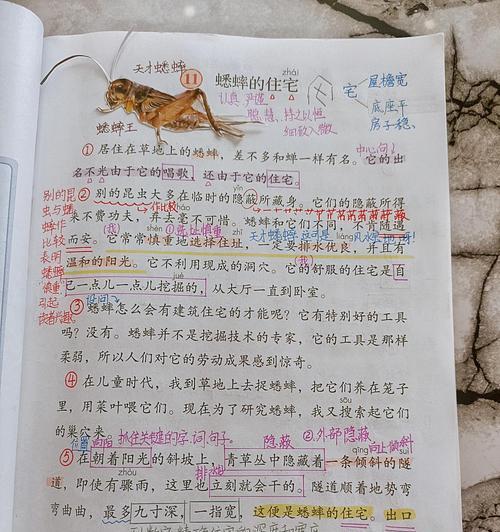 天才蟋蟀
zhái
11 蟋蟀的住宅
宅
屋檐宽
底座平
房子稳
认真 严谨
聪慧、持之以恒
细致入微
蟋蟀王
中心句
① 居住在草地上的蟋蟀，差不多和蝉一样有名。它的出
名不光由于它的唱歌，还由于它的住宅。
yǐn
② 别的昆虫大多在临时的隐蔽所藏身。它们的隐蔽所得
作比较
来不费功夫，弃去毫不可惜。蟋蟀和它们不同，不肯随遇
shèn
zhǐ
liáng
而安。它常常慎重地选择住址，一定要排水优良，并且有
温和的阳光。它不利用现成的洞穴。它的舒服的住宅是自
jué
己一点儿一点儿挖掘的，从大厅一直到卧室。
别的昆
虫与蟋
蟀作
比较
表明
蟋蟀
慎重
引起
读者兴趣
设问
③ 蟋蟀怎么会有建筑住宅的才能呢？它有特别好的工具
吗？没有。蟋蟀并不是挖掘技术的专家，它的工具是那样
柔弱，所以人们对它的劳动成果感到惊奇。
④ 在儿童时代，我到草地上去捉蟋蟀，把它们养在笼子
sōu
里，用菜叶喂它们。现在为了研究蟋蟀，我又搜索起它们
的巢穴来。
抓住关键的字、词、句子。
隐蔽
②外部隐蔽
qīng
向上倾斜
⑤ 在朝着阳光的斜坡上，青草丛中隐藏着一条倾斜的隧
排水
道，即使有骤雨，这里也立刻就会干的。隧道顺着地势弯
弯曲曲，最多九寸深，一指宽，这便是蟋蟀的住宅。出口